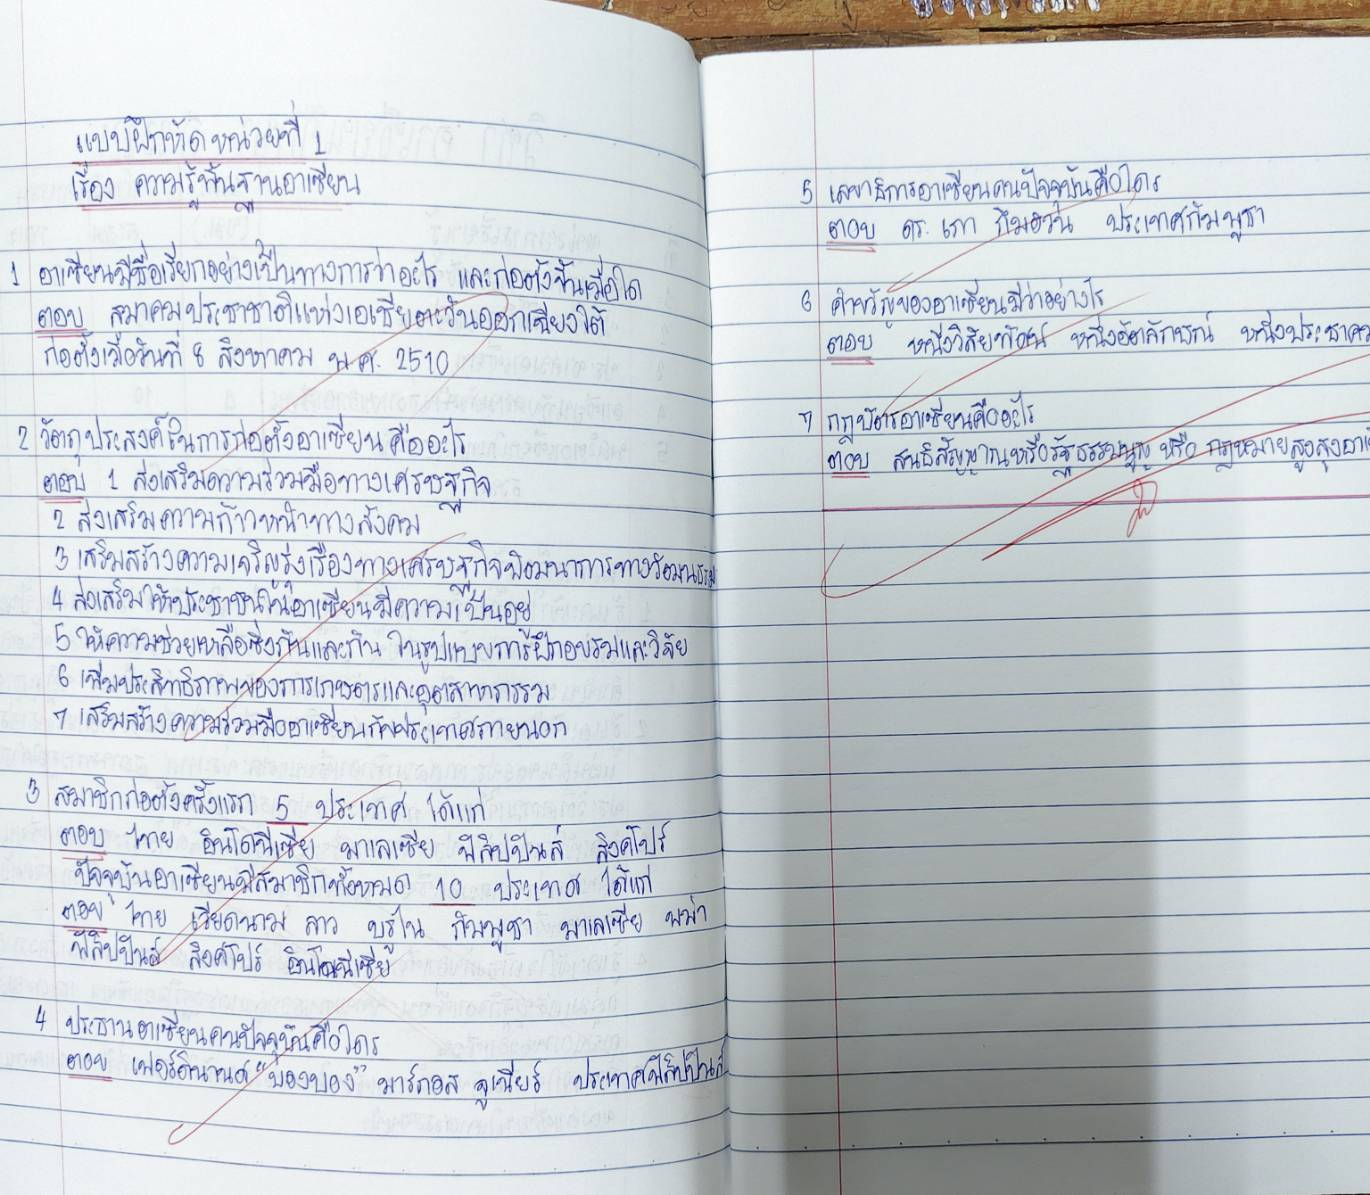 แบบฝึกหัดหน่วยที่ 1
เรื่อง ความรู้พื้นฐานอาเซียน
1 อาเซียนมีชื่อเรียกอย่างเป็นทางการว่าอะไร และก่อตั้งขึ้นเมื่อใด
ตอบ สมาคมประชาชาติแห่งเอเชียตะวันออกเฉียงใต้
ก่อตั้งเมื่อวันที่ 8 สิงหาคม พ.ศ. 2510
2 วัตถุประสงค์ในการก่อตั้งอาเซียนคืออะไร
ตอบ 1 ส่งเสริมความร่วมมือทางเศรษฐกิจ
2 ส่งเสริมความก้าวหน้าทางสังคม
3 เสริมสร้างความเจริญรุ่งเรืองทางเศรษฐกิจพัฒนาการทางวัฒนธรรม
4 ส่งเสริมให้ประชาชนในอาเซียนมีความเป็นอยู่
5 ให้ความช่วยเหลือซึ่งกันและกัน ในรูปแบบการฝึกอบรมและวิจัย
6 เพิ่มประสิทธิภาพของการเกษตรและอุตสาหกรรม
7 เสริมสร้างความร่วมมืออาเซียนกับประเทศภายนอก
3 สมาชิกก่อตั้งครั้งแรก 5 ประเทศ ได้แก่
ตอบ ไทย อินโดนีเซีย มาเลเซีย ฟิลิปปินส์ สิงคโปร์
ปัจจุบันอาเซียนมีสมาชิกทั้งหมด 10 ประเทศ ได้แก่
ตอบ ไทย เวียดนาม ลาว บรูไน กัมพูชา มาเลเซีย พม่า
ฟิลิปปินส์ สิงคโปร์ อินโดนีเซีย
4 ประธานอาเซียนคนปัจจุบันคือใคร
ตอบ เฟอร์ดินานด์ "บองบอง" มาร์กอส จูเนียร์ ประเทศฟิลิปปินส์
5 เลขาธิการอาเซียนคนปัจจุบันคือใคร
ตอบ ดร. เกา กิมฮวน ประเทศกัมพูชา
6 คำขวัญของอาเซียนมีว่าอย่างไร
ตอบ หนึ่งวิสัยทัศน์ หนึ่งอัตลักษณ์ หนึ่งประชาคว
7 กฎบัตรอาเซียนคืออะไร
ตอบ สนธิสัญญาณหรือรัฐธรรมนูญ หรือ กฎหมายสูงสุงอาเ